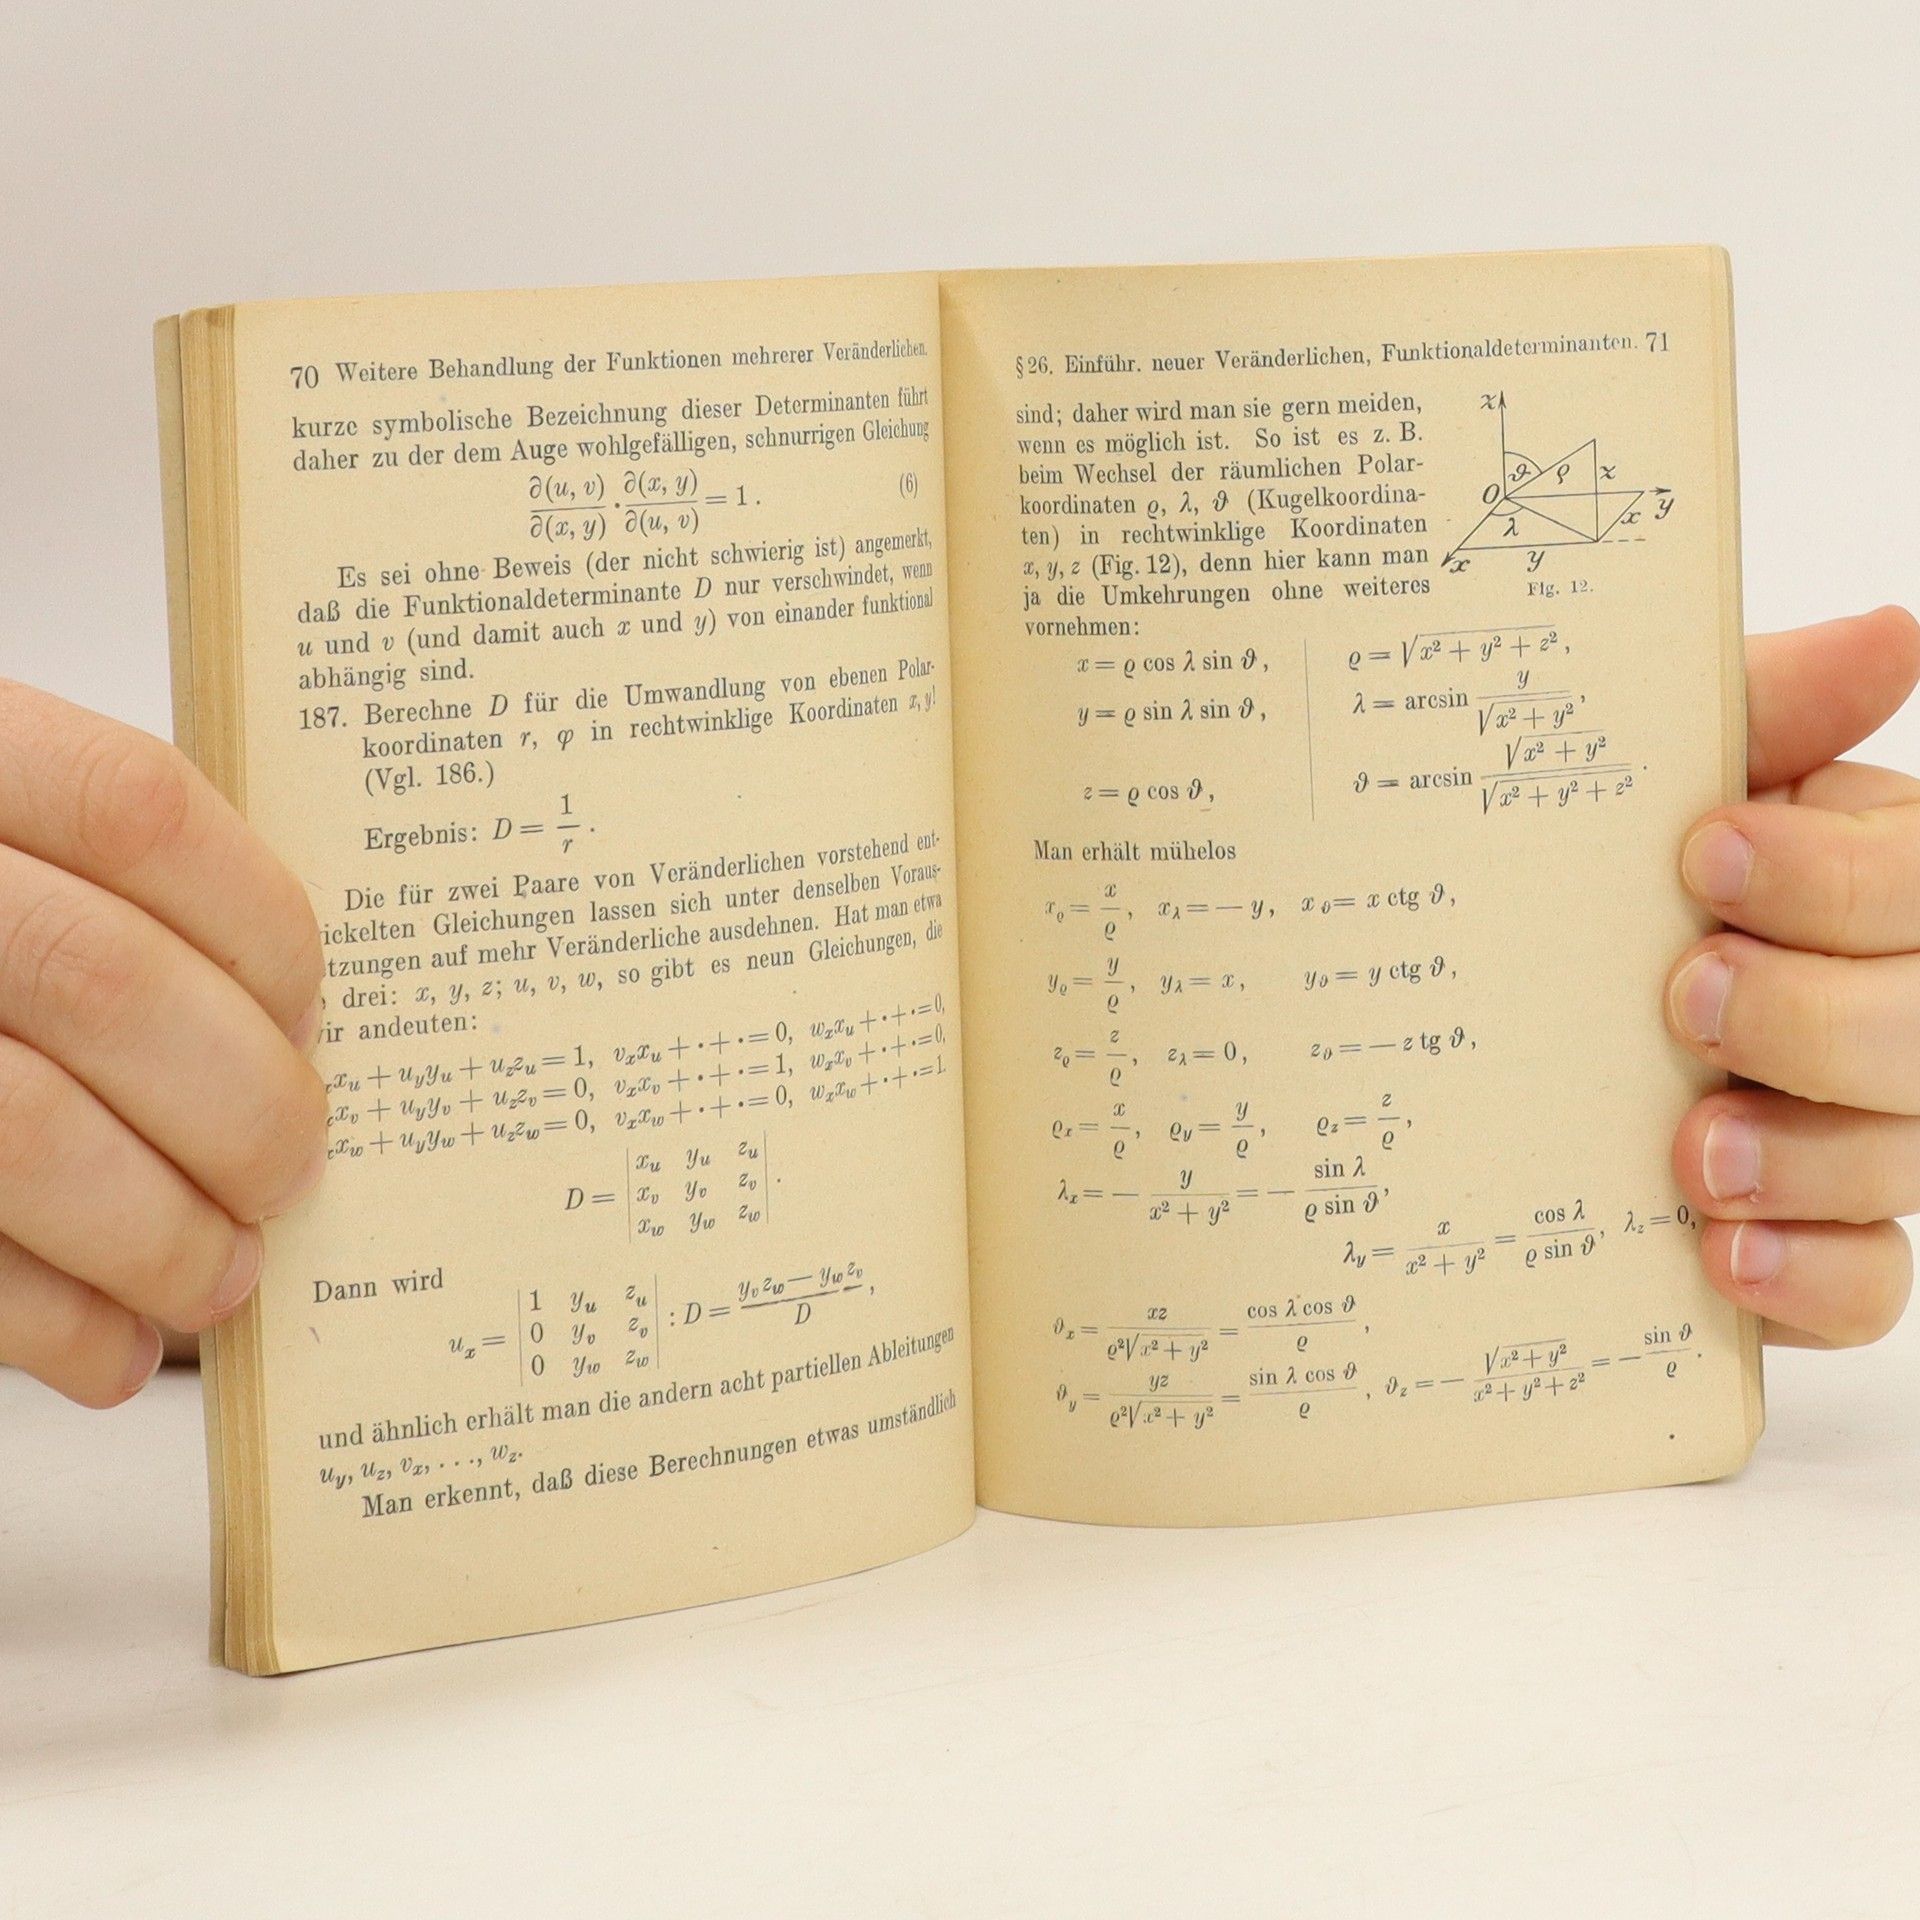 70 Weitere Behandlung der Funktionen mehrerer Veränderlichen.
kurze symbolische Bezeichnung dieser Determinanten führt
daher zu der dem Auge wohlgefälligen, schnurrigen Gleichung
∂(u, v)/∂(x, y) · ∂(x, y)/∂(u, v) = 1. (6)
Es sei ohne Beweis (der nicht schwierig ist) angemerkt,
daß die Funktionaldeterminante D nur verschwindet, wenn
u und v (und damit auch x und y) von einander funktional
abhängig sind.
187. Berechne D für die Umwandlung von ebenen Polar-
koordinaten r, φ in rechtwinklige Koordinaten x, y!
(Vgl. 186.)
Ergebnis: D = 1/r.
Die für zwei Paare von Veränderlichen vorstehend ent-
ickelten Gleichungen lassen sich unter denselben Voraus-
tzungen auf mehr Veränderliche ausdehnen. Hat man etwa
drei: x, y, z; u, v, w, so gibt es neun Gleichungen, die
ir andeuten:
x_u + u_y y_u + u_z z_u = 1, v_x x_u + · + · = 0, w_x x_u + · + · = 0,
x_v + u_y y_v + u_z z_v = 0, v_x x_v + · + · = 1, w_x x_v + · + · = 0,
x_w + u_y y_w + u_z z_w = 0, v_x x_w + · + · = 0, w_x x_w + · + · = 1.
| x_u y_u z_u |
D = | x_v y_v z_v | .
| x_w y_w z_w |
Dann wird
| 1 y_u z_u |
u_x = | 0 y_v z_v | : D = (y_v z_w — y_w z_v)/D,
| 0 y_w z_w |
und ähnlich erhält man die andern acht partiellen Ableitungen
u_y, u_z, v_x, . . ., w_z.
Man erkennt, daß diese Berechnungen etwas umständlich
§ 26. Einführ. neuer Veränderlichen, Funktionaldeterminanten. 71
sind; daher wird man sie gern meiden,
wenn es möglich ist. So ist es z. B.
beim Wechsel der räumlichen Polar-
koordinaten ϱ, λ, ϑ (Kugelkoordina-
ten) in rechtwinklige Koordinaten
x, y, z (Fig. 12), denn hier kann man
ja die Umkehrungen ohne weiteres
vornehmen:
z
ϑ ϱ z
O y
λ x
x y
Fig. 12.
x = ϱ cos λ sin ϑ, ϱ = √(x² + y² + z²),
y = ϱ sin λ sin ϑ, λ = arcsin y/√(x² + y²),
z = ϱ cos ϑ, ϑ = arcsin √(x² + y²)/√(x² + y² + z²).
Man erhält mühelos
x_ϱ = x/ϱ, x_λ = — y, x_ϑ = x ctg ϑ,
y_ϱ = y/ϱ, y_λ = x, y_ϑ = y ctg ϑ,
z_ϱ = z/ϱ, z_λ = 0, z_ϑ = — z tg ϑ,
ϱ_x = x/ϱ, ϱ_y = y/ϱ, ϱ_z = z/ϱ,
λ_x = — y/(x² + y²) = — sin λ/(ϱ sin ϑ),
λ_y = x/(x² + y²) = cos λ/(ϱ sin ϑ), λ_z = 0,
ϑ_x = xz/(ϱ²√(x² + y²)) = cos λ cos ϑ/ϱ,
ϑ_y = yz/(ϱ²√(x² + y²)) = sin λ cos ϑ/ϱ, ϑ_z = — √(x² + y²)/(x² + y² + z²) = — sin ϑ/ϱ.